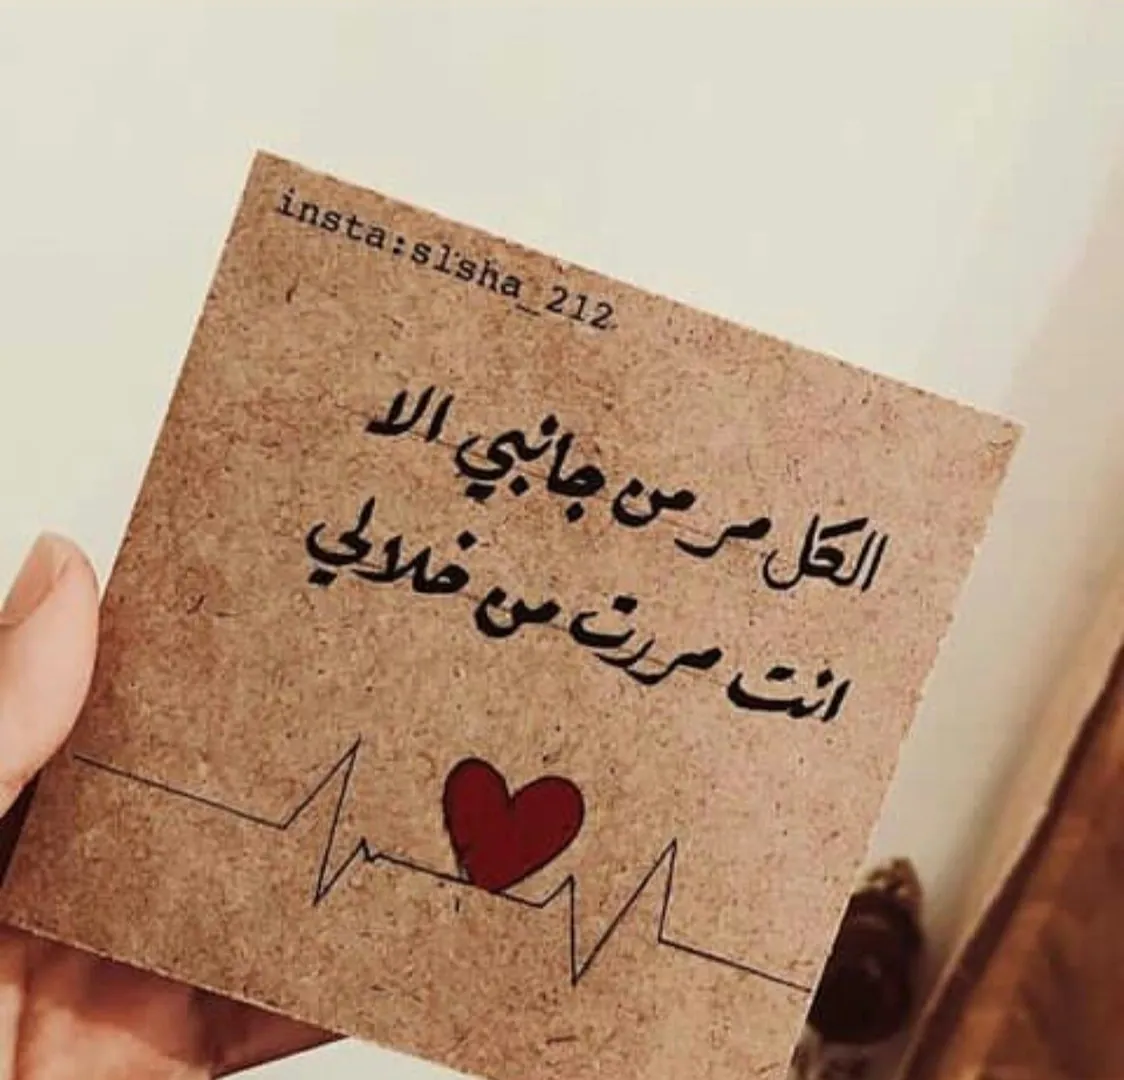 insta:slsha_212
الكل مر من جانبي الا
انت مررت من خلالي